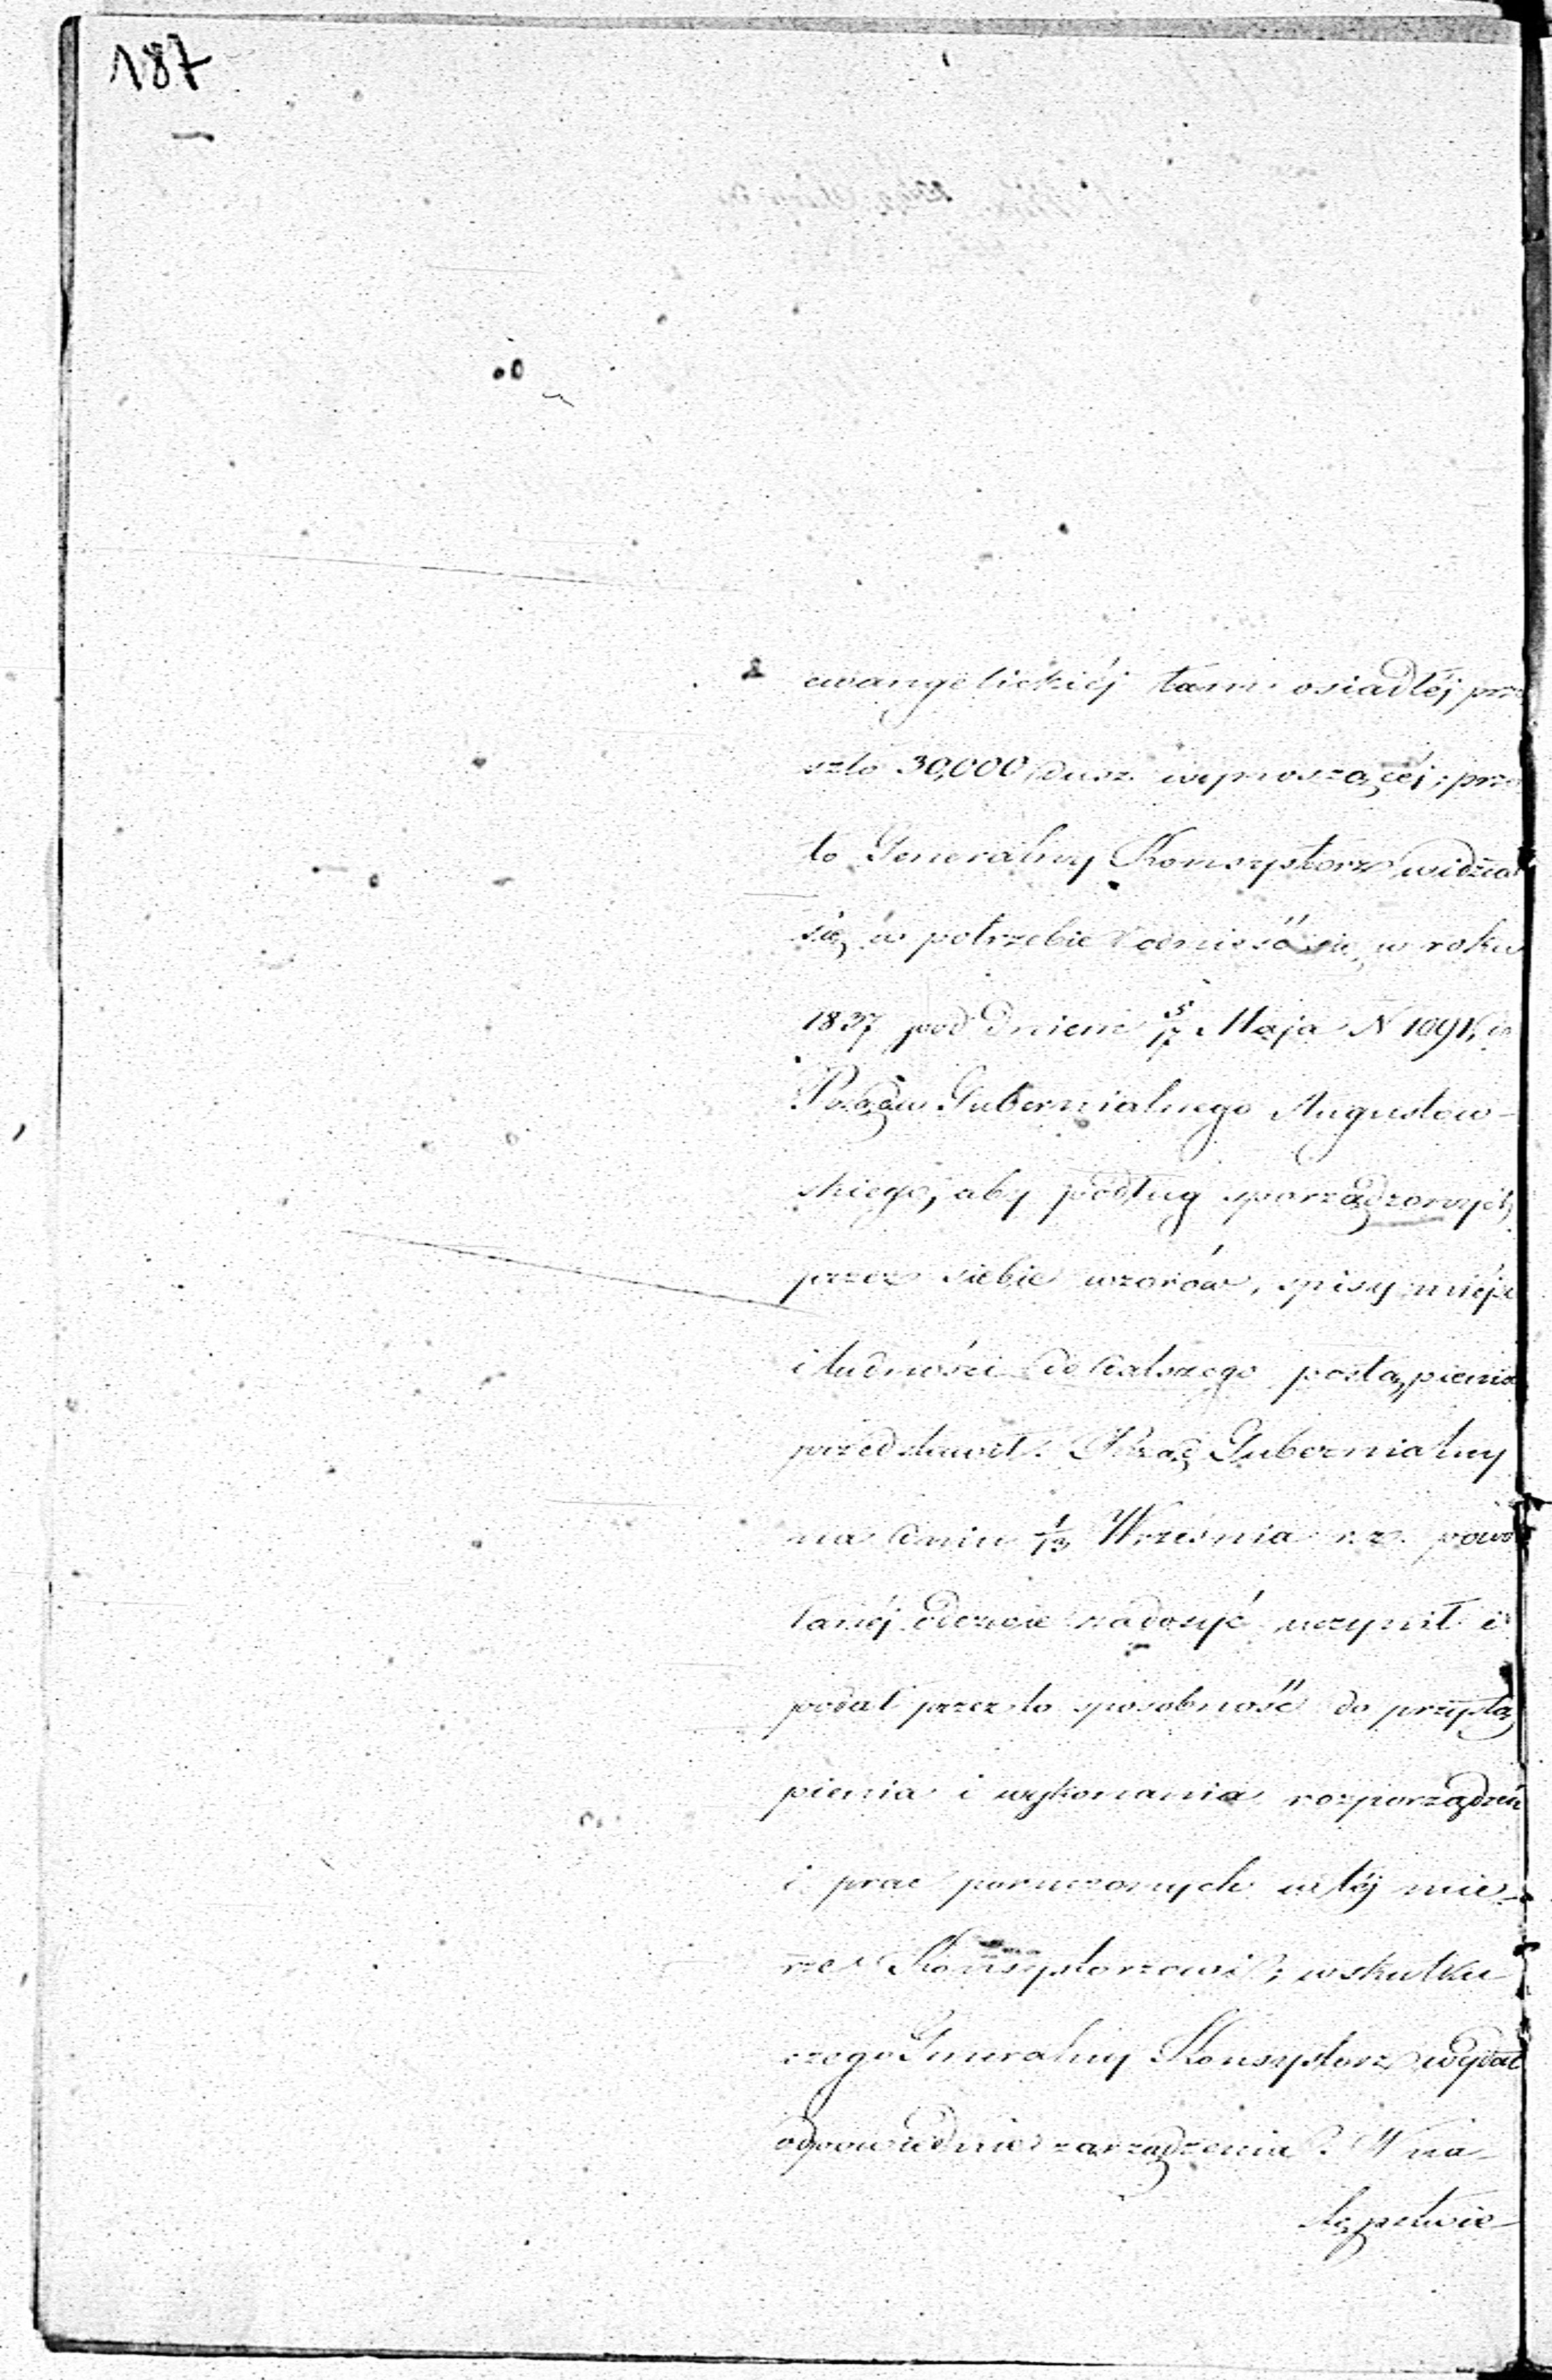 187
ewangelickiéj tam osiadłéj prze
szło 30,000 dusz wynoszącéj; prze
to Generalny Konsystorz widział
się w potrzebie odnieść się w roku
1837 pod dniem 5/17 Maja N 1091, do
Rządu Gubernialnego Augustow-
skiego, aby podług sporządzonych
przez siebie wzorów, spisy miejsc
i ludności do dalszego postąpienia
przedstawił. Rząd Gubernialny
na dniu 1/13 Września r. z. powo
łanéj odezwie zadosyć uczynił i
podał przez to sposobność do przystą
pienia i wykonania rozporządzeń
i prac poruczonych w téj mie-
rze Konsystorzowi; w skutku
czego Generalny Konsystorz wydał
odpowiednie zarządzenia. W na-
stępstwie